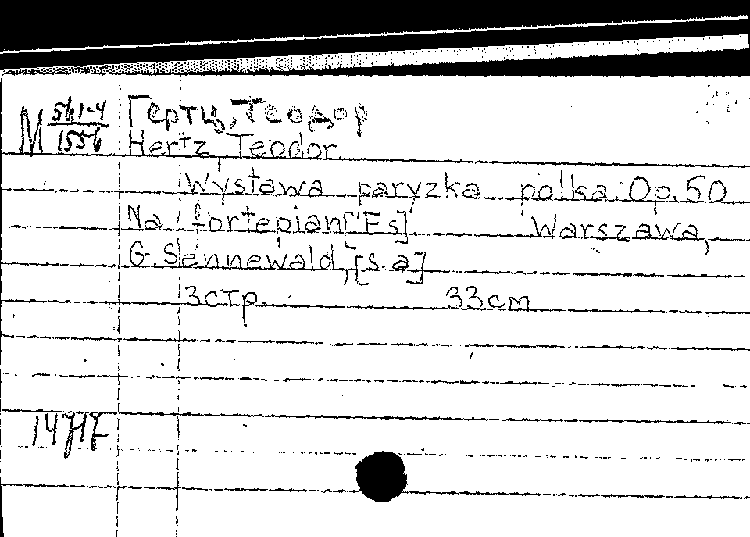 М 561-4/1556 Гертц, Теодор
Hertz, Teodor.
Wystawa paryzka polka. Op. 50
Na fortepian [Es]. Warszawa,
G. Sennewald, [s.a]
3стр. 33cm
14717